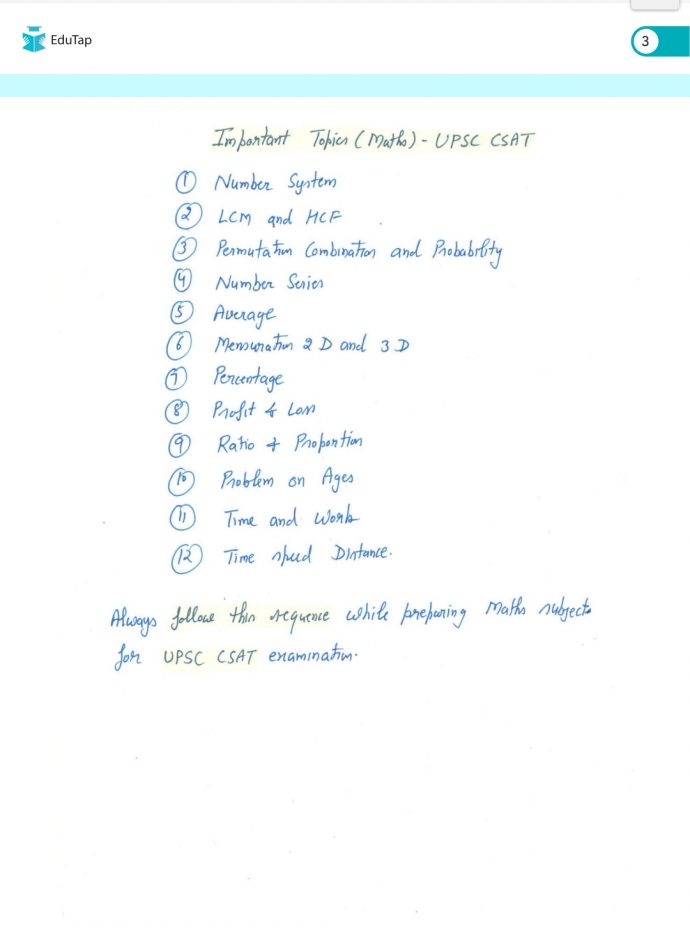 EduTap
3
Important Topics (Maths) - UPSC CSAT
1 Number System
2 LCM and HCF
3 Permutation Combination and Probability
4 Number Series
5 Average
6 Mensuration 2 D and 3 D
7 Percentage
8 Profit & Loss
9 Ratio & Proportion
10 Problem on Ages
11 Time and Work
12 Time speed Distance.
Always follow this sequence while preparing Maths subjects
for UPSC CSAT examination.